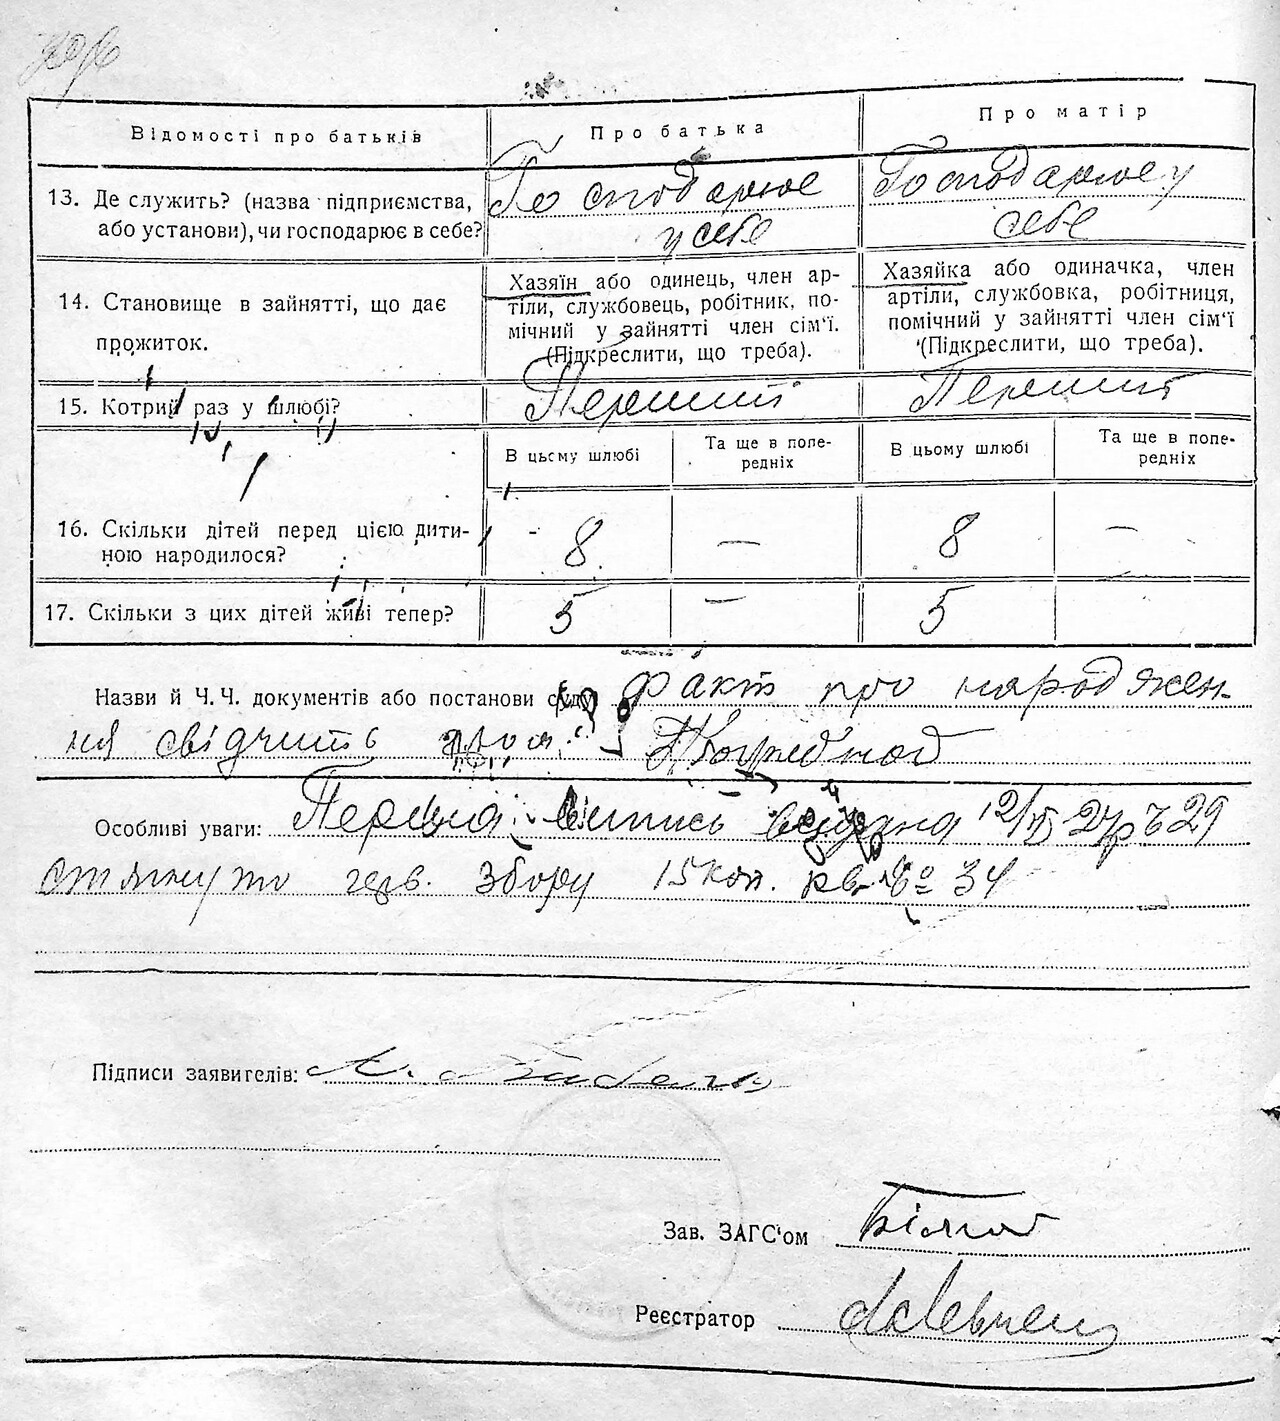 Відомості про батьків
Про батька
Про матір
13. Де служить? (назва підприємства,
або установи), чи господарює в себе?
Господарює
у себе
Господарює у
себе
14. Становище в зайнятті, що дає
прожиток.
Хазяїн або одинець, член ар-
тіли, службовець, робітник, по-
мічний у зайнятті член сім'ї.
(Підкреслити, що треба).
Хазяйка або одиначка, член
артіли, службовка, робітниця,
помічний у зайнятті член сім'ї
(Підкреслити, що треба).
15. Котрий раз у шлюбі?
Перший
Перший
В цьому шлюбі
Та ще в попе-
редніх
В цьому шлюбі
Та ще в попе-
редніх
16. Скільки дітей перед цією дити-
ною народилося?
8
—
8
—
17. Скільки з цих дітей живі тепер?
5
—
5
Назви й Ч.Ч. документів або постанови суду Факт про народжен-
ня свідчить
Особливі уваги: Перша випись видана 12/ 29
стягнуто герб. збору 15 коп. кв. № 34
Підписи заявителів:
Зав. ЗАГС'ом
Реєстратор